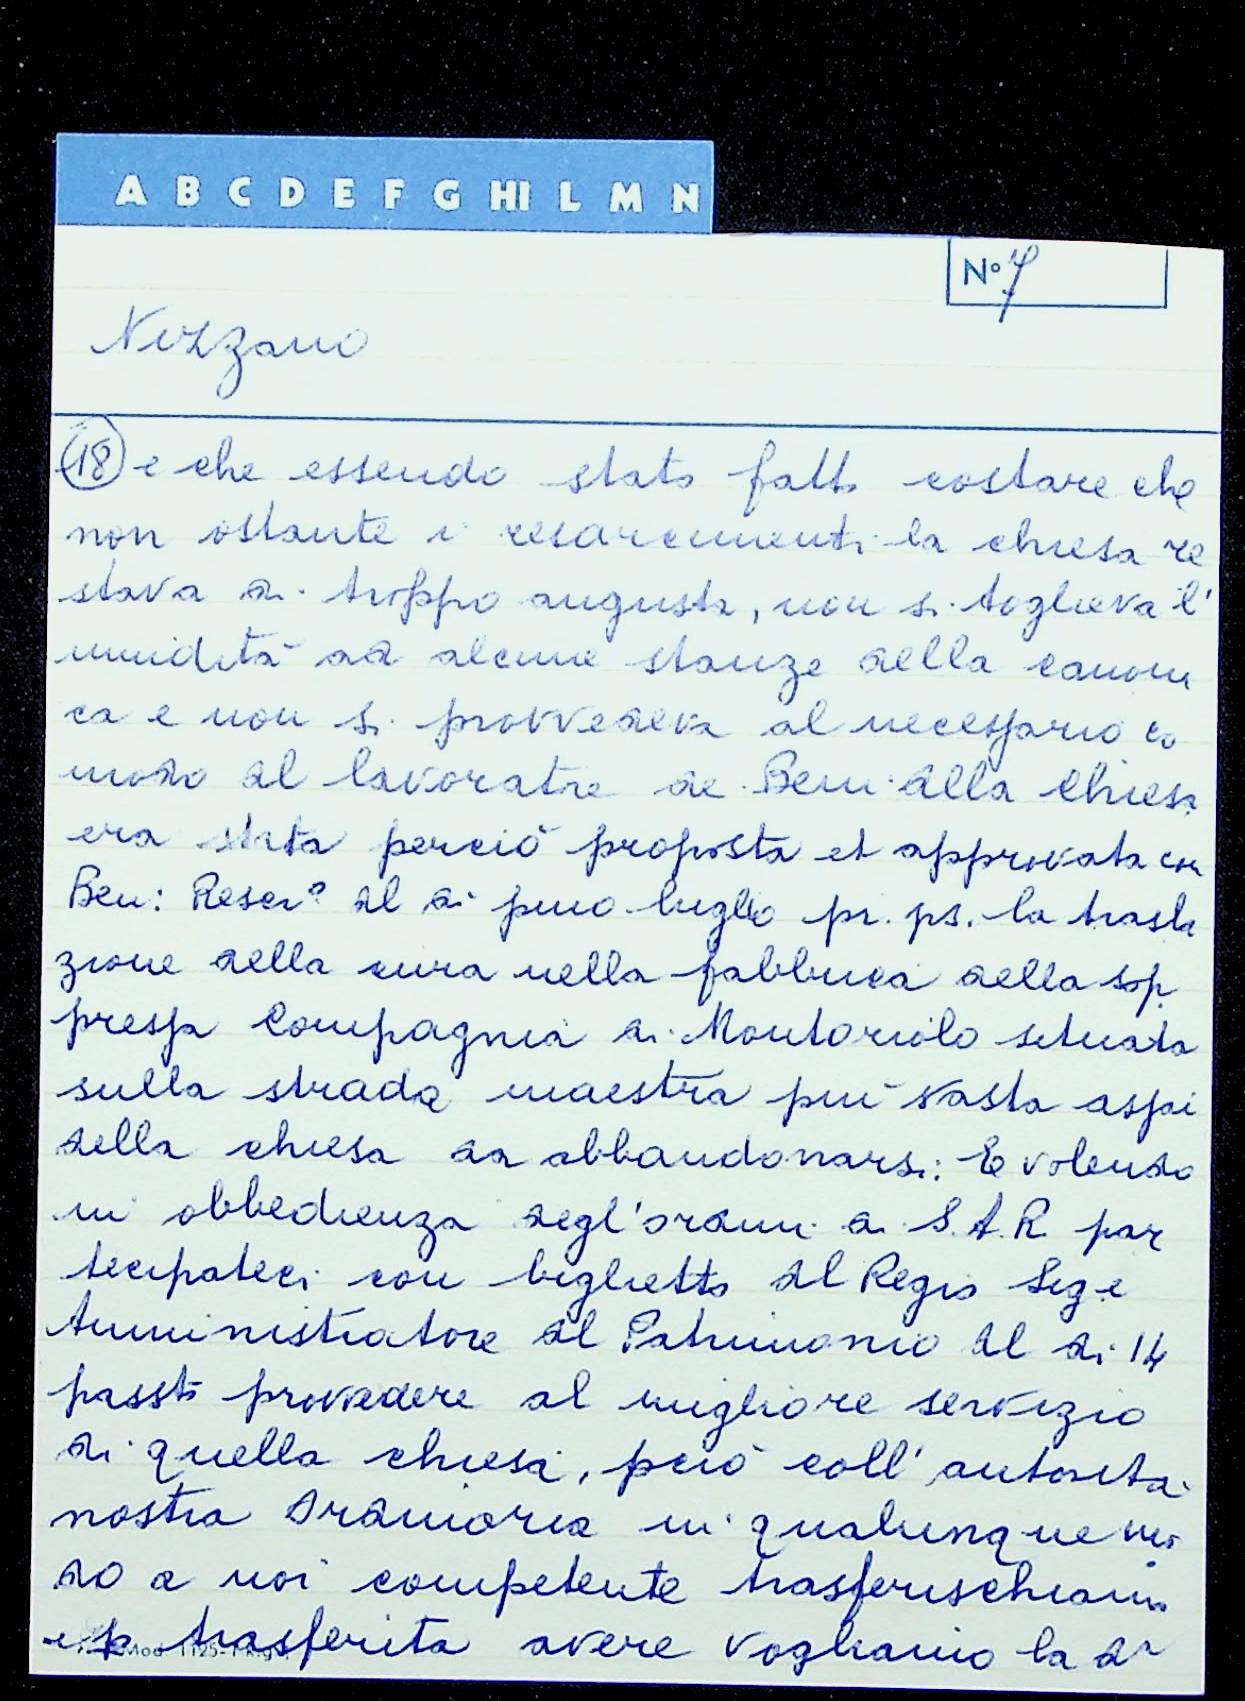 A B C D E F G HI L M N
N° 7
Nizzano
(18) e che essendo stato fatto costare che
non ostante i resarcimenti la chiesa re
stava di troppo angusta, non si toglieva l'
umidità ad alcune stanze della canoni
ca e non si provvedeva al necessario co
modo del lavoratore de Beni della Chiesa
era stata perciò proposta et approvata con
Ben: Rescr° del di pmo luglio pr. ps. la trasla
zione della cura nella fabbrica della sop
pressa Compagnia di Montoriolo situata
sulla strada maestra più vasta assai
della chiesa da abbandonarsi: E volendo
in obbedienza degl'ordini di S.A.R. par
tecipateci con biglietto del Regio Sig.e
Amministratore del Patrimonio del di 14
passto provvedere al migliore servizio
di quella chiesa, pciò coll' autorità
nostra ordinaria in qualunque mo
do a noi competente trasferischiamo
e trasferita avere vogliamo la